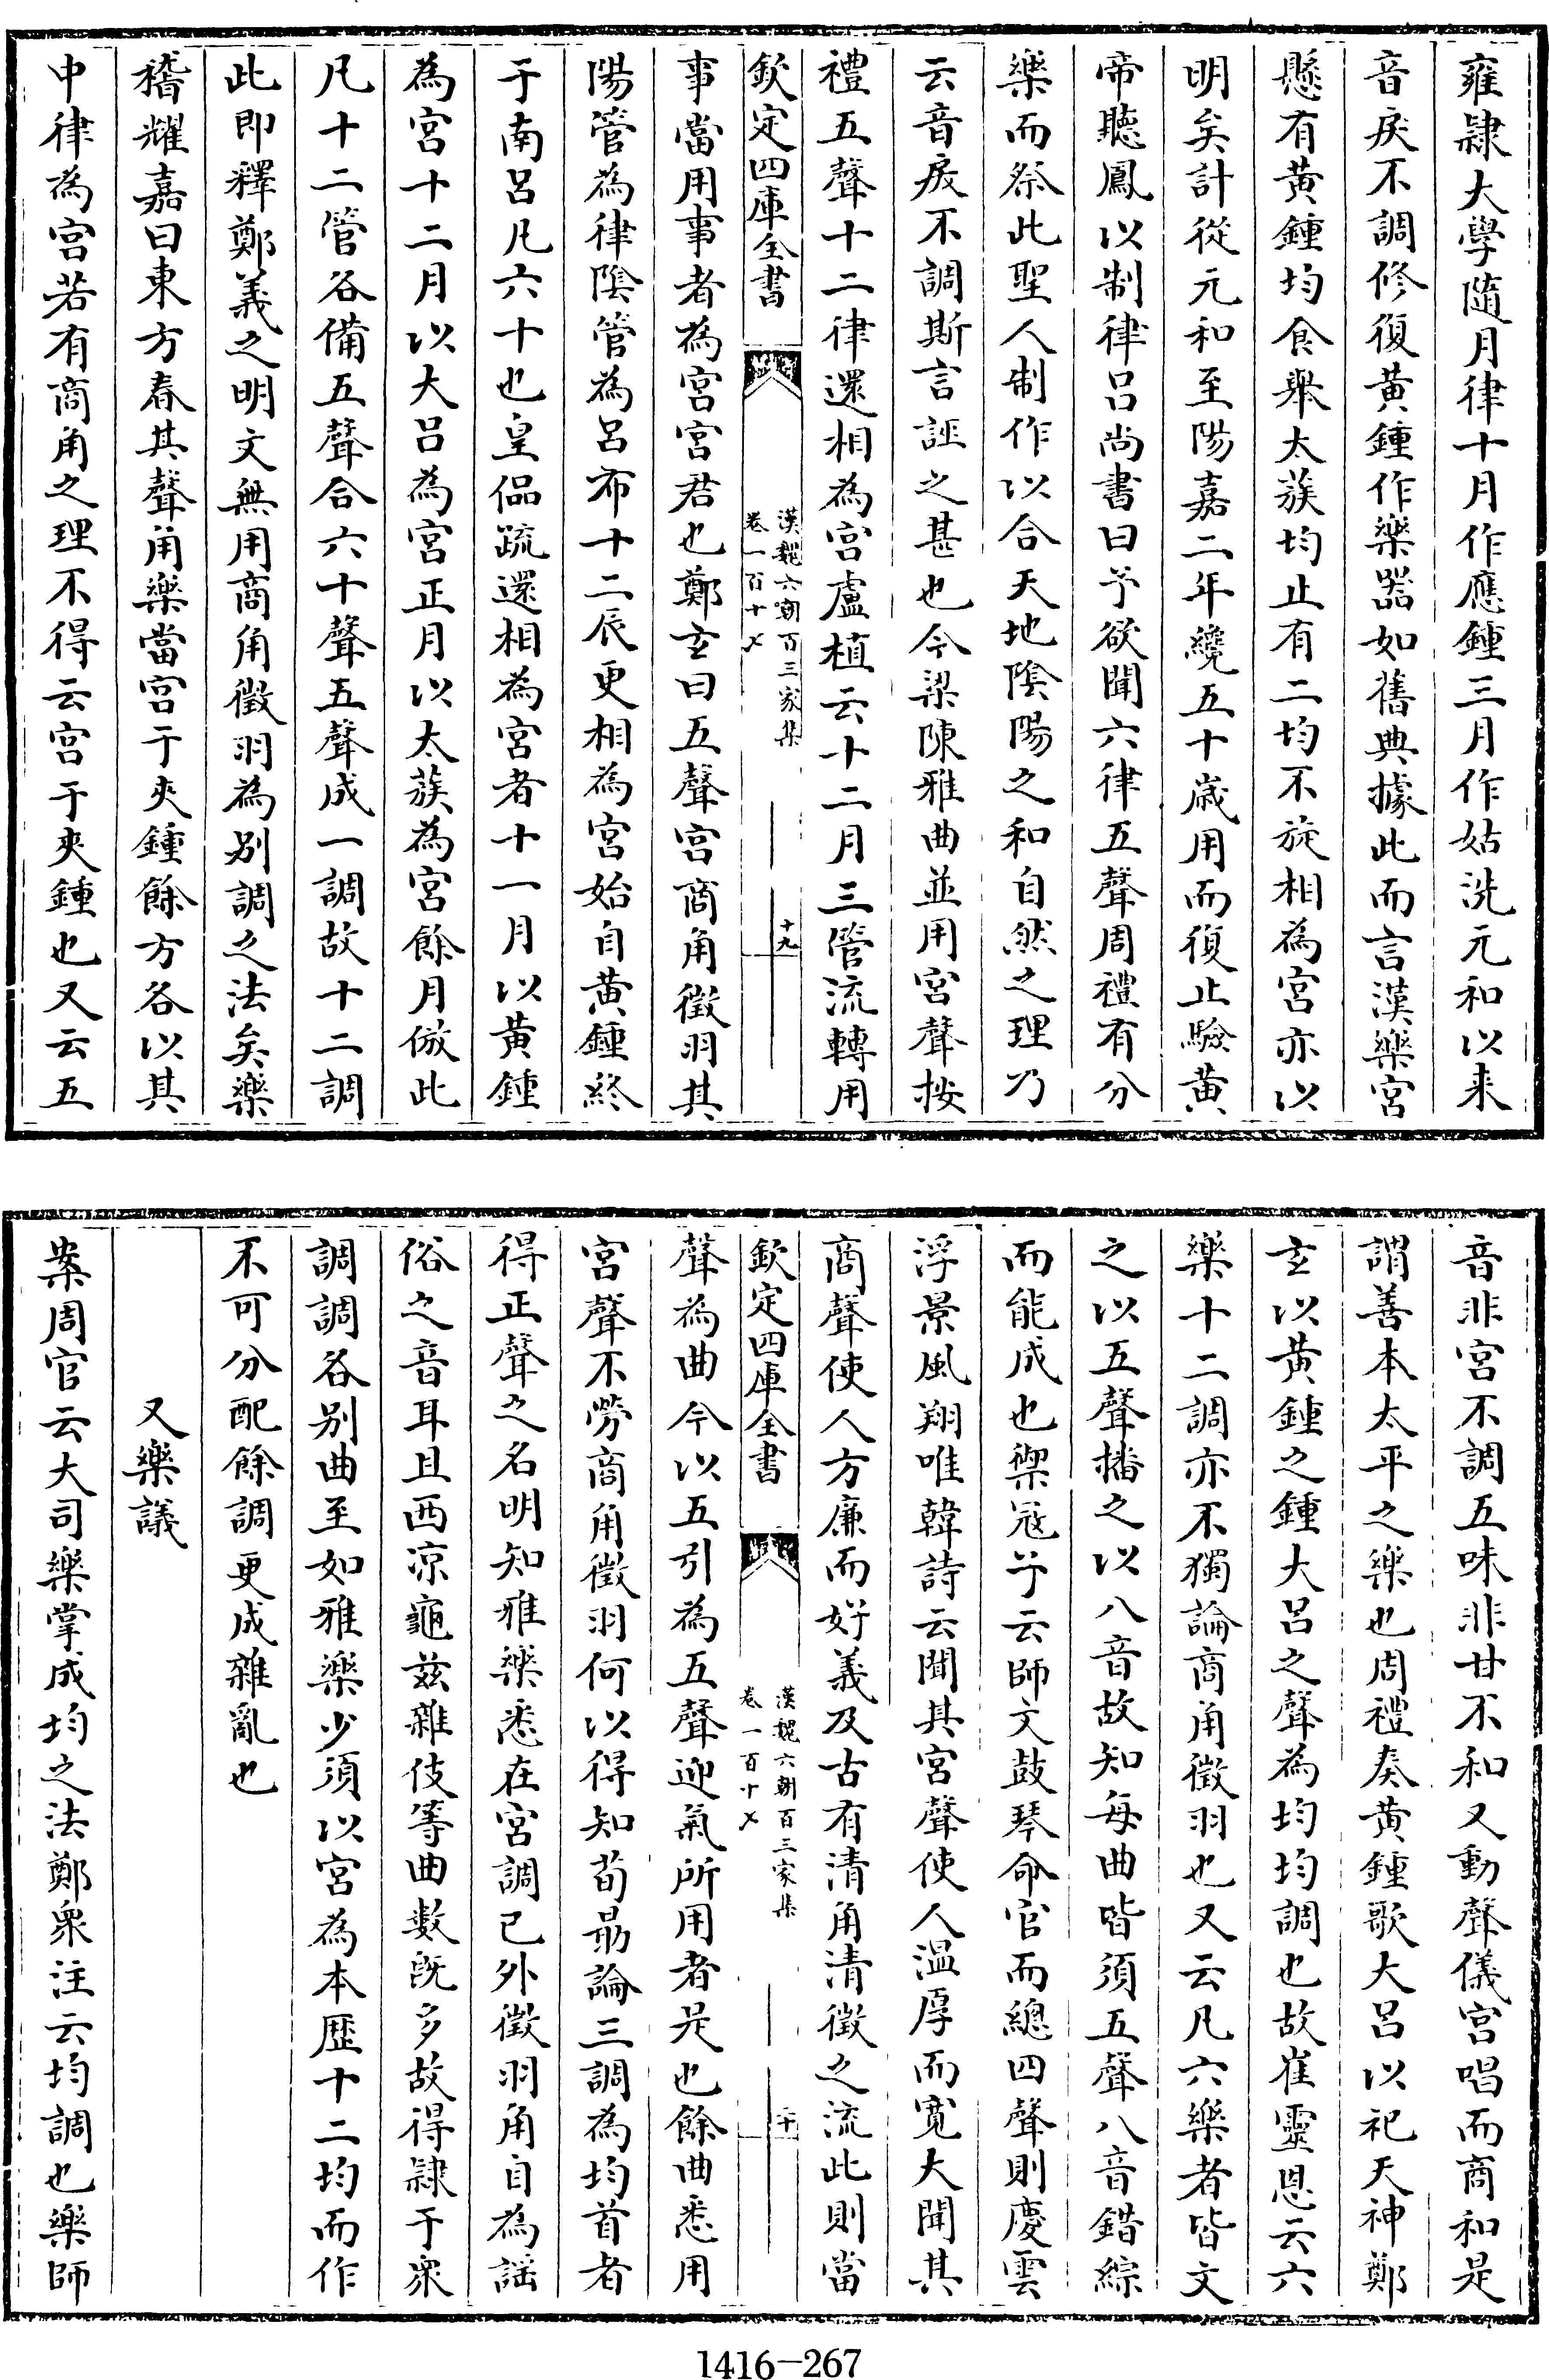 雍隷大學隨月律十月作應鍾三月作姑洗元和以来
音戾不調修復黄鍾作樂器如舊典據此而言漢樂宮
懸有黄鍾均食舉太蔟均止有二均不旋相為宮亦以
明矣計從元和至陽嘉二年纔五十嵗用而復止驗黄
帝聽鳳以制律吕尚書曰予欲聞六律五聲周禮有分
樂而祭此聖人制作以合天地隂陽之和自然之理乃
云音戾不調斯言誣之甚也今梁陳雅曲並用宮聲按
禮五聲十二律還相為宮盧植云十二月三管流轉用
欽定四庫全書
漢魏六朝百三家集
卷一百十七
十九
事當用事者為宮宮君也鄭𤣥曰五聲宮商角徵羽其
陽管為律隂管為吕布十二辰更相為宮始自黄鍾終
于南吕凡六十也皇侃疏還相為宮者十一月以黄鍾
為宮十二月以大吕為宮正月以太蔟為宮餘月倣此
凡十二管各備五聲合六十聲五聲成一調故十二調
此即釋鄭義之明文無用商角徵羽為别調之法矣樂
稽耀嘉曰東方春其聲角樂當宮于夾鍾餘方各以其
中律為宮若有商角之理不得云宮于夾鍾也又云五
音非宮不調五味非甘不和又動聲儀宮唱而商和是
謂善本太平之樂也周禮奏黄鍾歌大吕以祀天神鄭
𤣥以黄鍾之鍾大吕之聲為均均調也故崔靈恩云六
樂十二調亦不獨論商角徵羽也又云凡六樂者皆文
之以五聲播之以八音故知每曲皆須五聲八音錯綜
而能成也禦冦子云師文鼓琴命宫而總四聲則慶雲
浮景風翔唯韓詩云聞其宮聲使人温厚而寛大聞其
商聲使人方廉而好義及古有清角清徵之流此則當
欽定四庫全書
漢魏六朝百三家集
卷一百十七
二十
聲為曲今以五引為五聲迎氣所用者是也餘曲悉用
宮聲不勞商角徵羽何以得知荀朂論三調為均首者
得正聲之名明知雅樂悉在宮調已外徵羽角自為謡
俗之音耳且西凉龜兹雜伎等曲數既多故得隷于衆
調調各别曲至如雅樂少須以宮為本歴十二均而作
不可分配餘調更成雜亂也
又樂議
案周官云大司樂掌成均之法鄭衆注云均調也樂師
1416-267